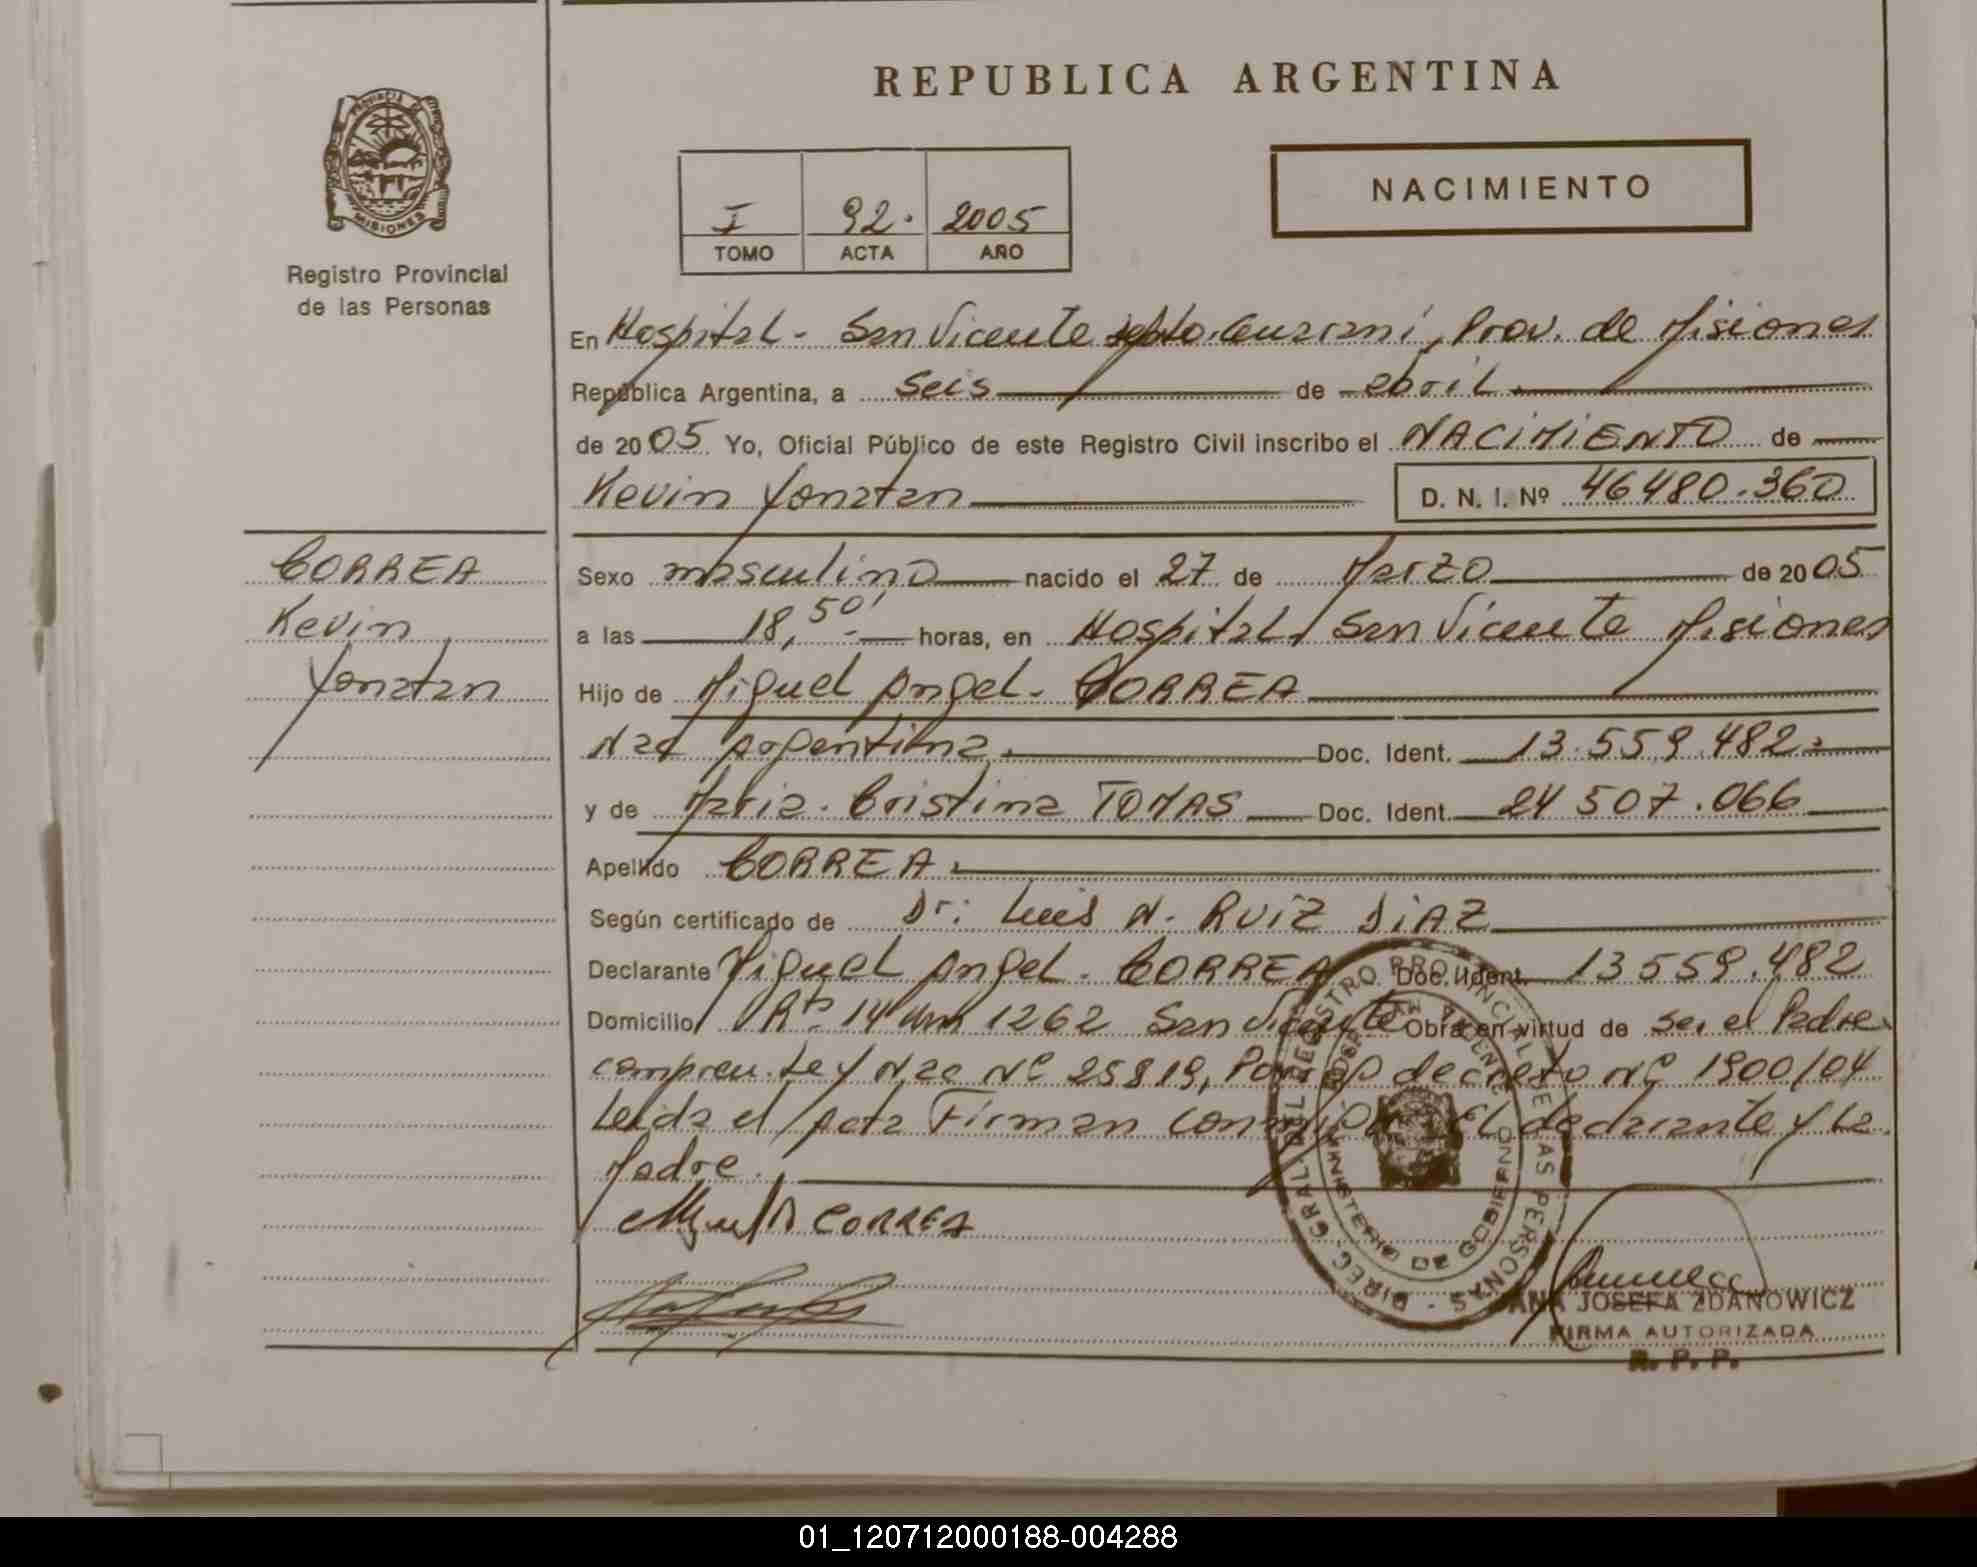 REPUBLICA ARGENTINA
PROVINCIA DE
MISIONES
Registro Provincial
de las Personas
I 92. 2005
TOMO ACTA AÑO
NACIMIENTO
En Hospital - San Vicente Guarani, Prov. de Misiones
República Argentina, a seis de abril
de 2005 Yo, Oficial Público de este Registro Civil inscribo el NACIMIENTO de
Kevin Yonatan D. N. I. Nº 46480.360
CORREA
Kevin
Yonatan
Sexo masculino nacido el 27 de Marzo de 2005
a las 18,50 horas, en Hospital, San Vicente Misiones
Hijo de Miguel Angel - CORREA
Nac Argentina. Doc. Ident. 13.559.482
y de Maria Cristina TOMAS Doc. Ident. 24 507.066
Apellido CORREA
Según certificado de Dr: Luis N. RUIZ DIAZ
Declarante Miguel Angel - CORREA Doc. Ident. 13559.482
Domicilio Rta 14 Km 1262 San Vicente Obra en virtud de ser el Padre
Ley Nac Nº 25819, decreto Nº 1900/04
Leida el acta Firman conmigo El declarante y la
Madre.
CORREA
DIREC. GRAL. DEL REGISTRO PROVINCIAL DE LAS PERSONAS
MINISTERIO DE GOBIERNO
SAN VICENTE
ANA JOSEFA ZDANOWICZ
FIRMA AUTORIZADA
R. P. P.
01_120712000188-004288